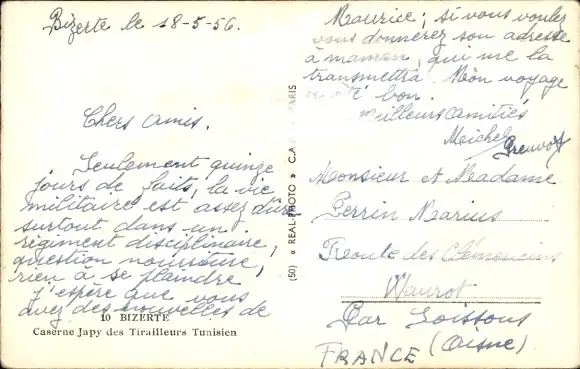 Bizerte le 18-5-56.
Chers amis.
Seulement quinze
jours de faits, la vie
militaire est assez dûre
surtout dans un
régiment disciplinaire,
question nourriture,
rien à se plaindre
j'espère que vous
avez des nouvelles de
10 BIZERTE
Caserne Japy des Tirailleurs Tunisien
(50) « REAL-PHOTO » C.A. PARIS
Maurice; si vous voulez
vous donnerez son adresse
à maman, qui me la
transmettra. Mon voyage
bon.
Meilleurs amitiés
Meichel
Monsieur et Madame
Perrin Marius
Route des
Par Soissons
(Aisne)
FRANCE